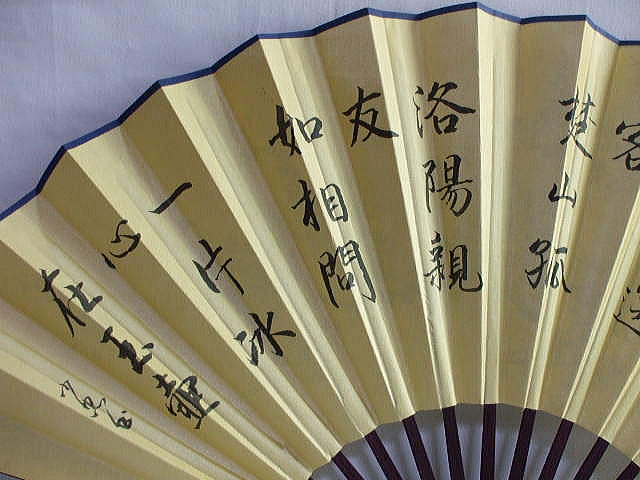 送
客
楚山孤
洛陽親
友
如相問
一片冰
心
在玉壺